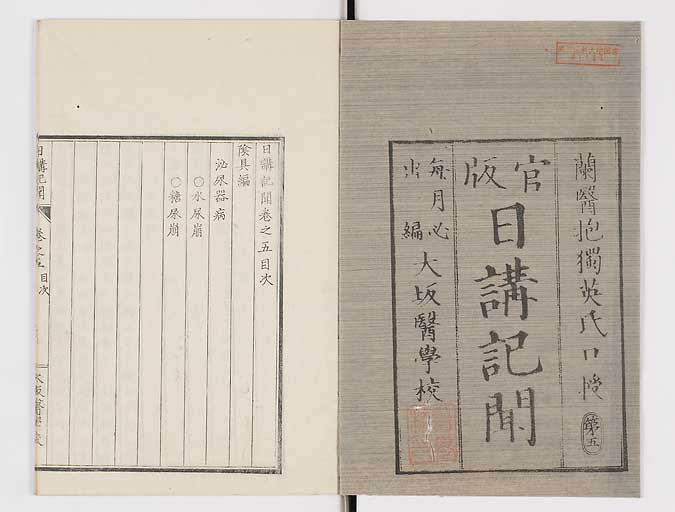 蘭醫抱獨英氏口授
第五
官版
日講記聞
每月必出編
大坂醫學校
日講記聞卷之五目次
陰具編
泌尿器病
〇水尿崩
〇糖尿崩
日講記聞
卷之五目次
大坂醫學校